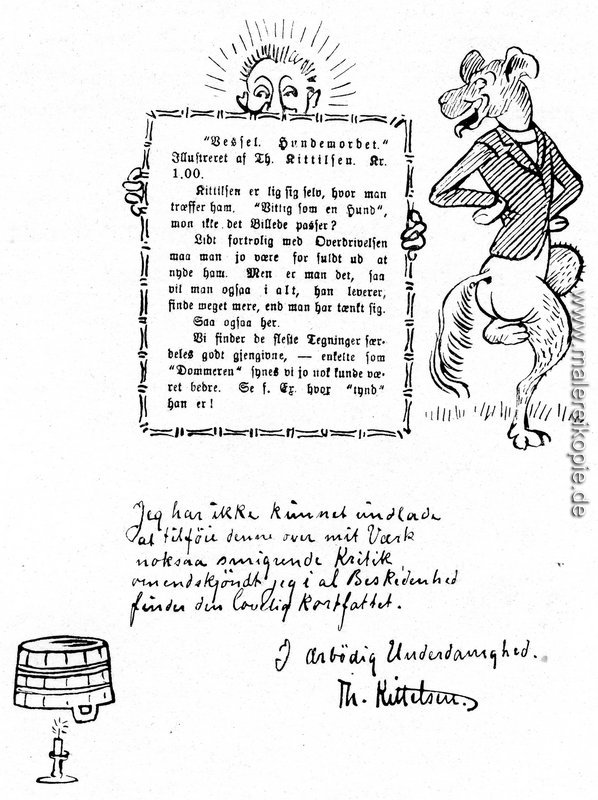 "Vessel. Hundemordet."
Illustreret af Th. Kittilsen. Kr.
1,00.
Kittilsen er lig sig selv, hvor man
træffer ham. "Vittig som en Hund",
mon ikke det Billede passer?
Lidt fortrolig med Overdrivelsen
maa man jo være for fuldt ud at
nyde ham. Men er man det, saa
vil man ogsaa i alt, han leverer,
finde meget mere, end man har tænkt sig.
Saa ogsaa her.
Vi finder de fleste Tegninger sær-
deles godt gjengivne, — enkelte som
"Dommeren" synes vi jo nok kunde væ-
ret bedre. Se f. Ex. hvor "tynd"
han er!
Jeg har ikke kunnet undlade
at tilföie denne over mit Værk
noksaa smigrende Kritik
omendskjöndt jeg i al Beskedenhed
finder den lovlig kortfattet.
I ærbödig Underdanighed.
Th. Kittelsen.
www.malereikopie.de